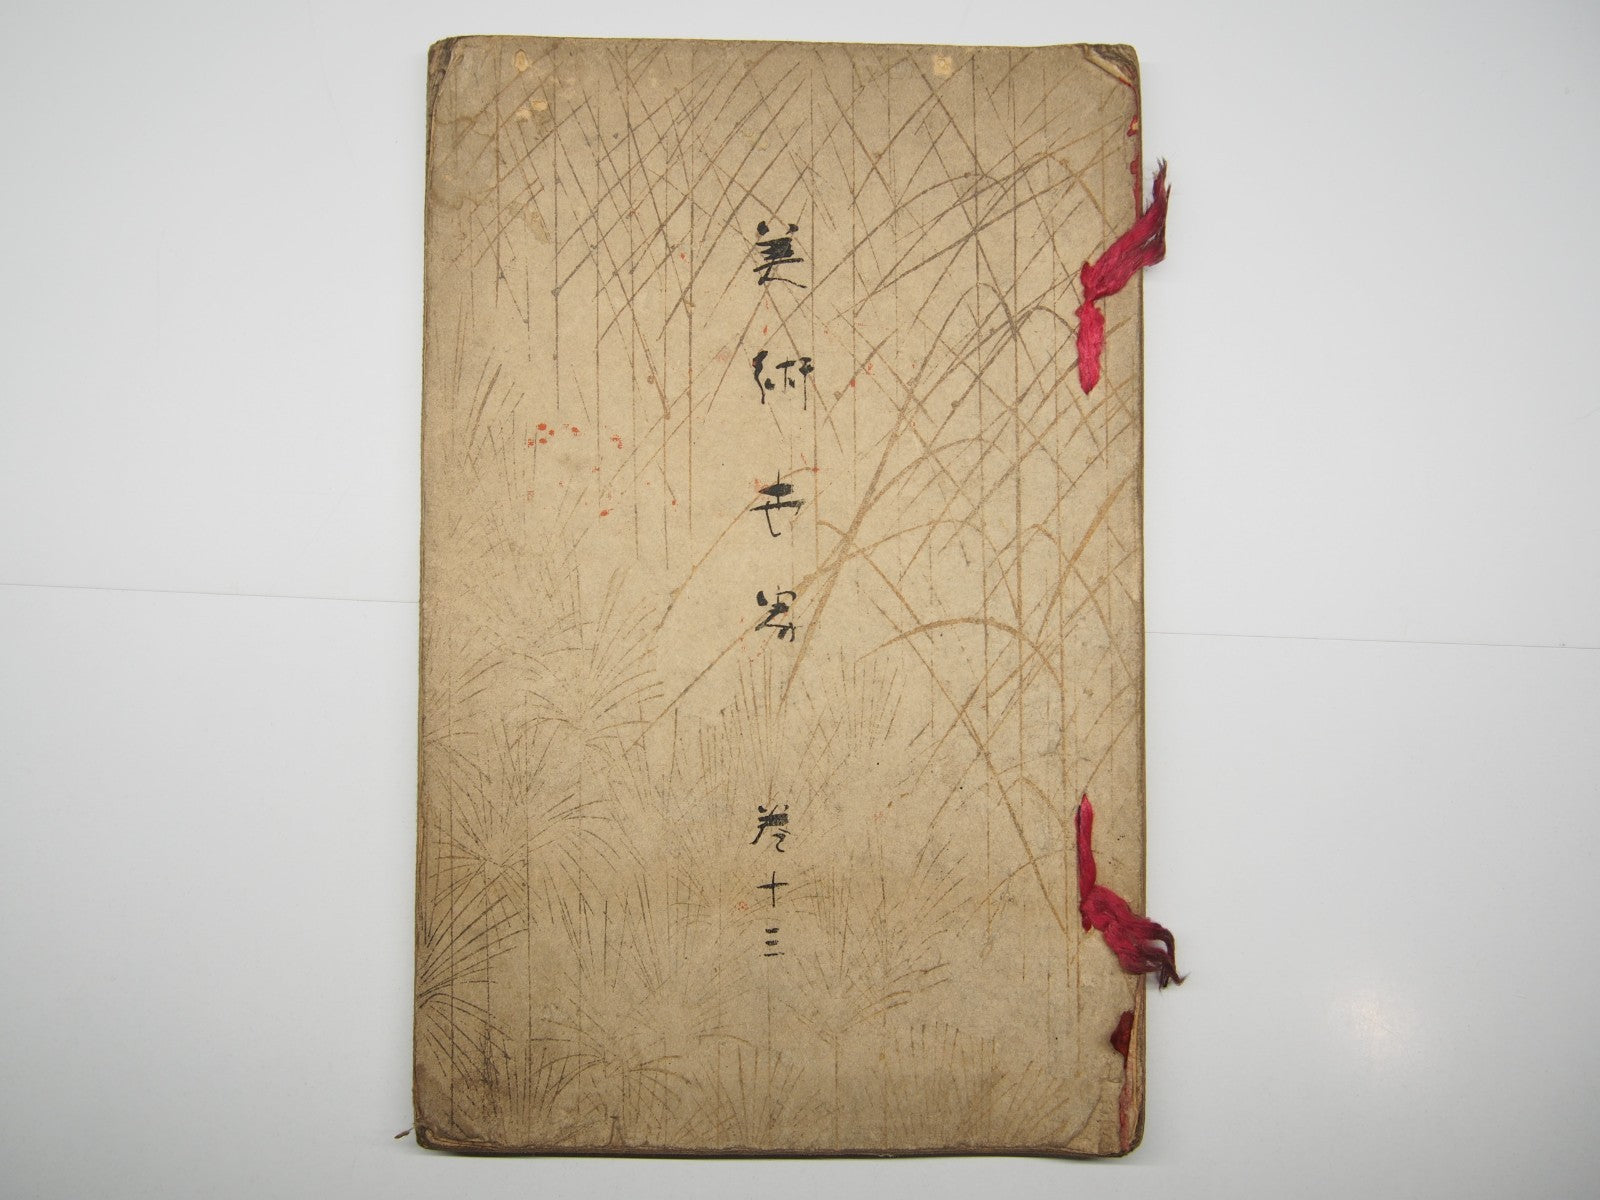 美術世界
巻十三